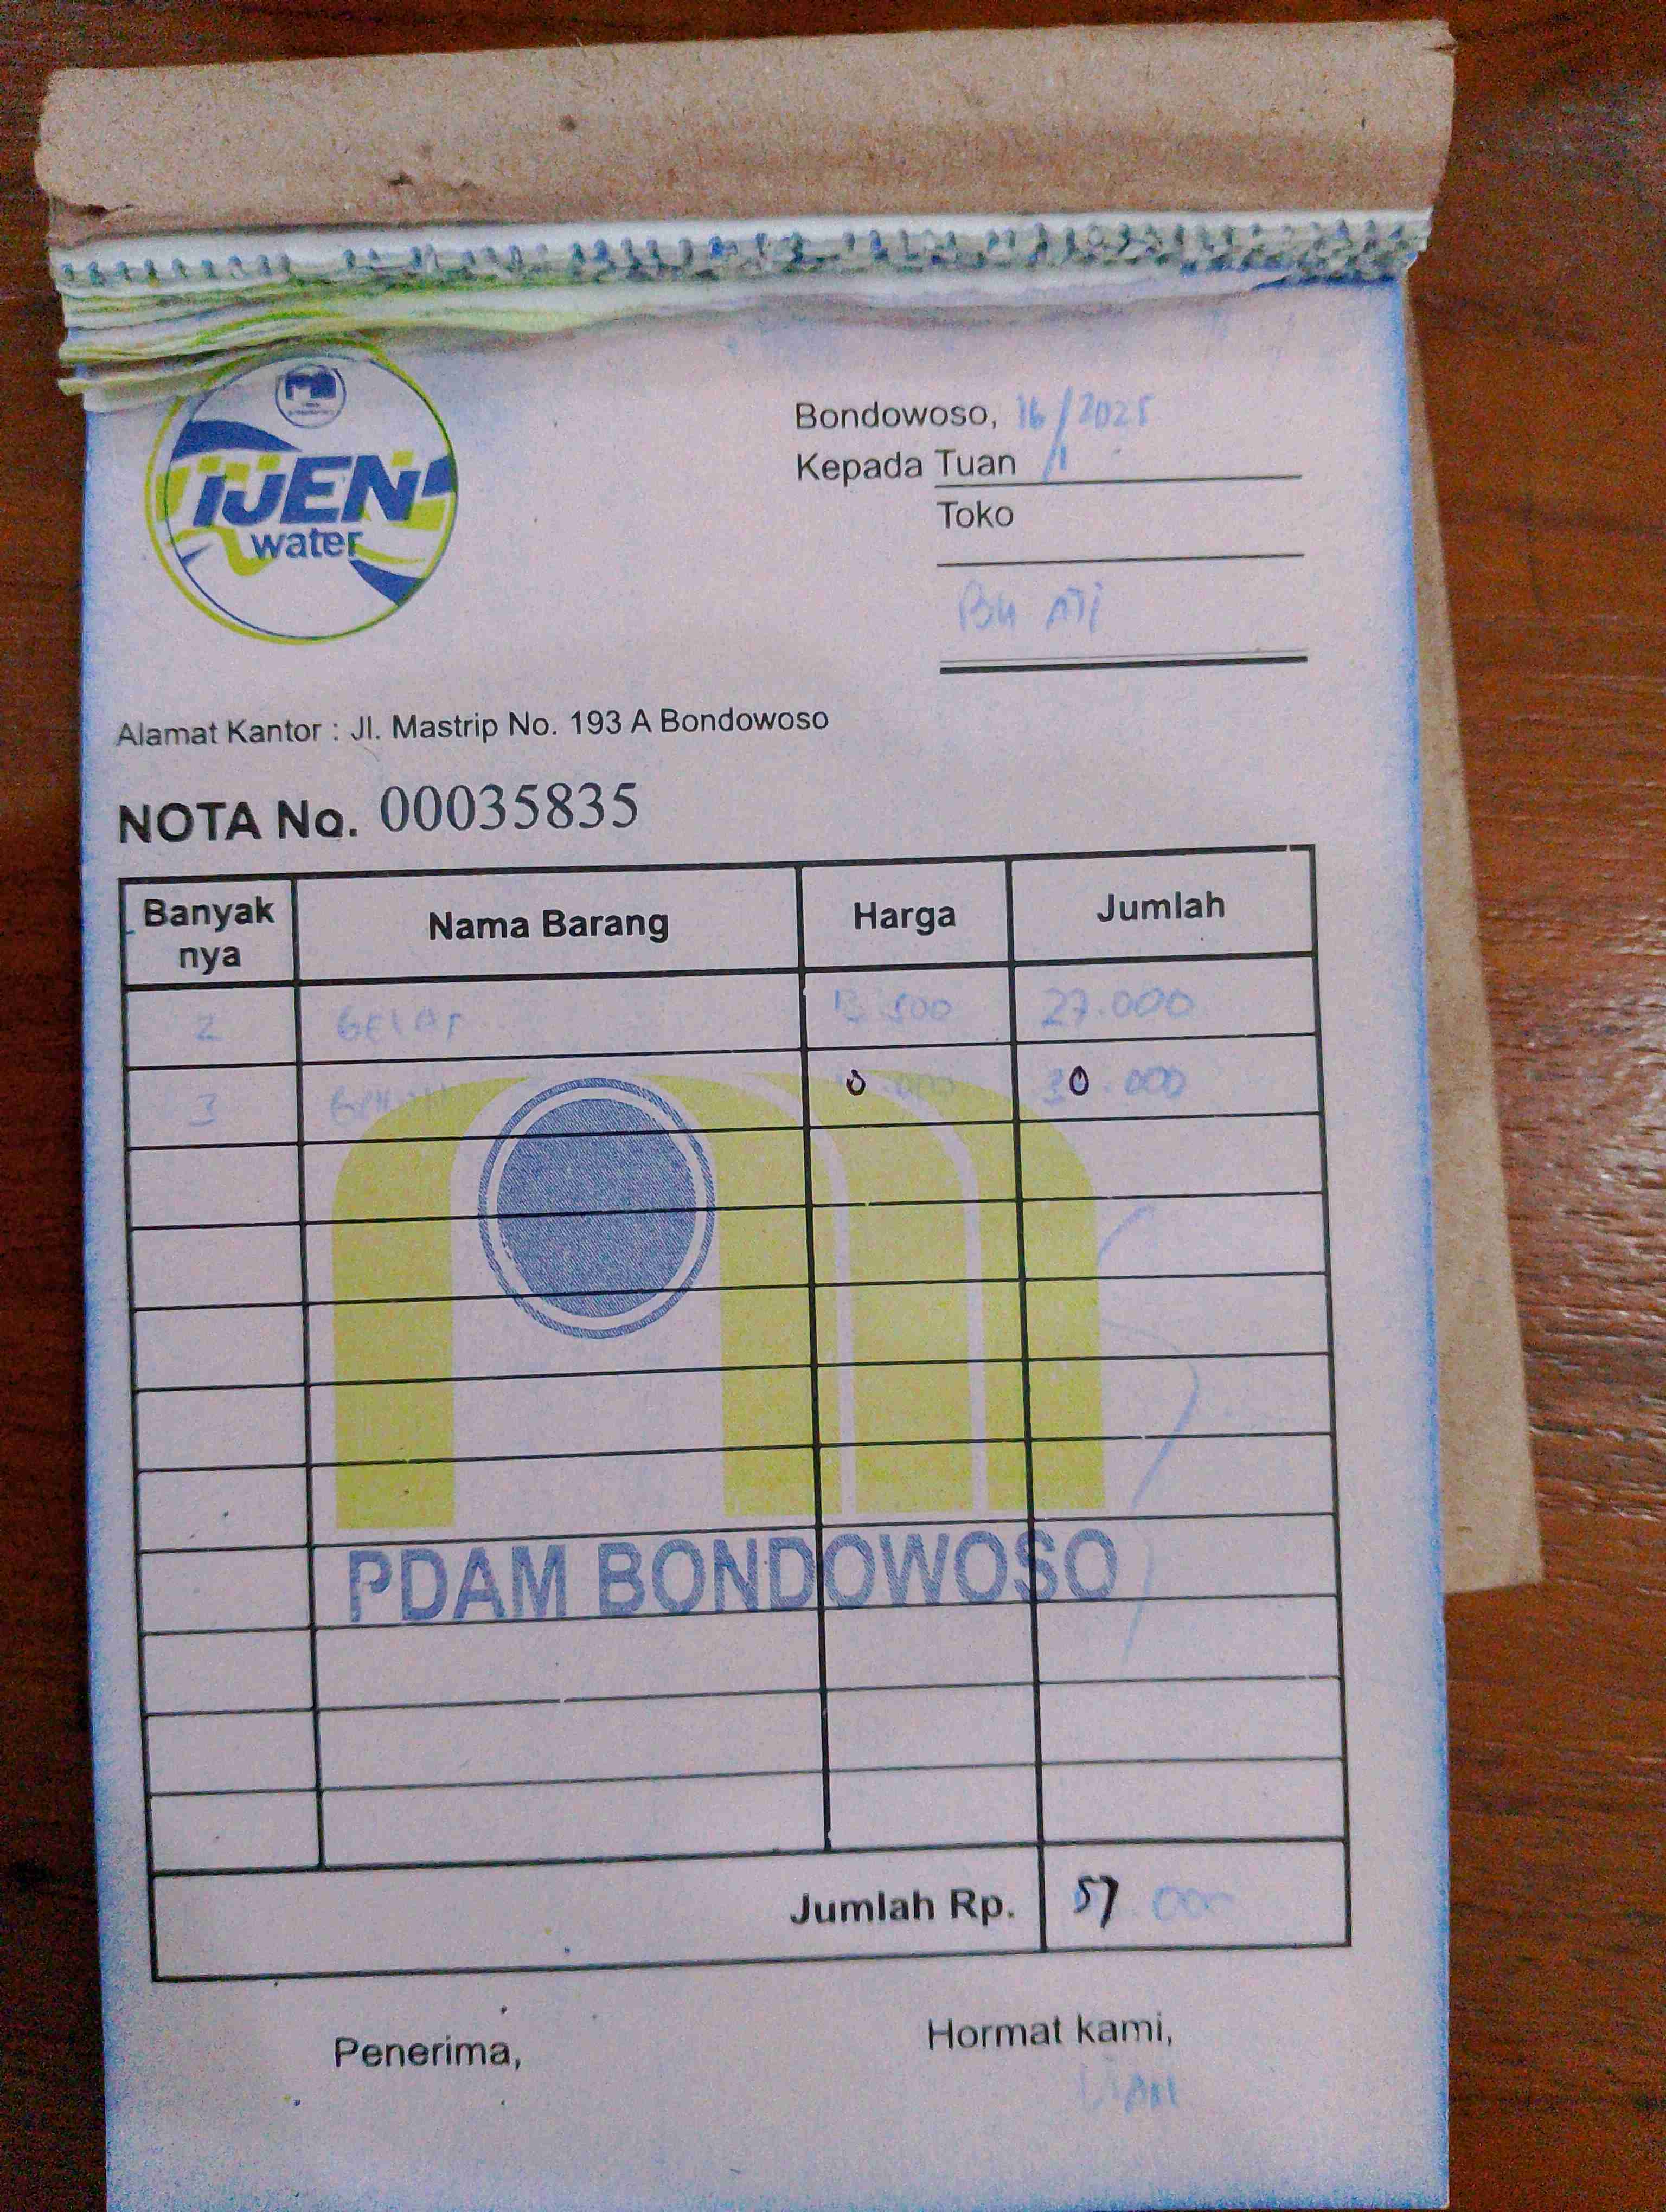 IJEN
water
Bondowoso, 16/1 2025
Kepada Tuan
Toko
Bu ATi
Alamat Kantor : Jl. Mastrip No. 193 A Bondowoso
NOTA No. 00035835
Banyak nya Nama Barang Harga Jumlah
2 GELAS 13.500 27.000
3 30.000
PDAM BONDOWOSO
Jumlah Rp. 57.000
Penerima, Hormat kami,